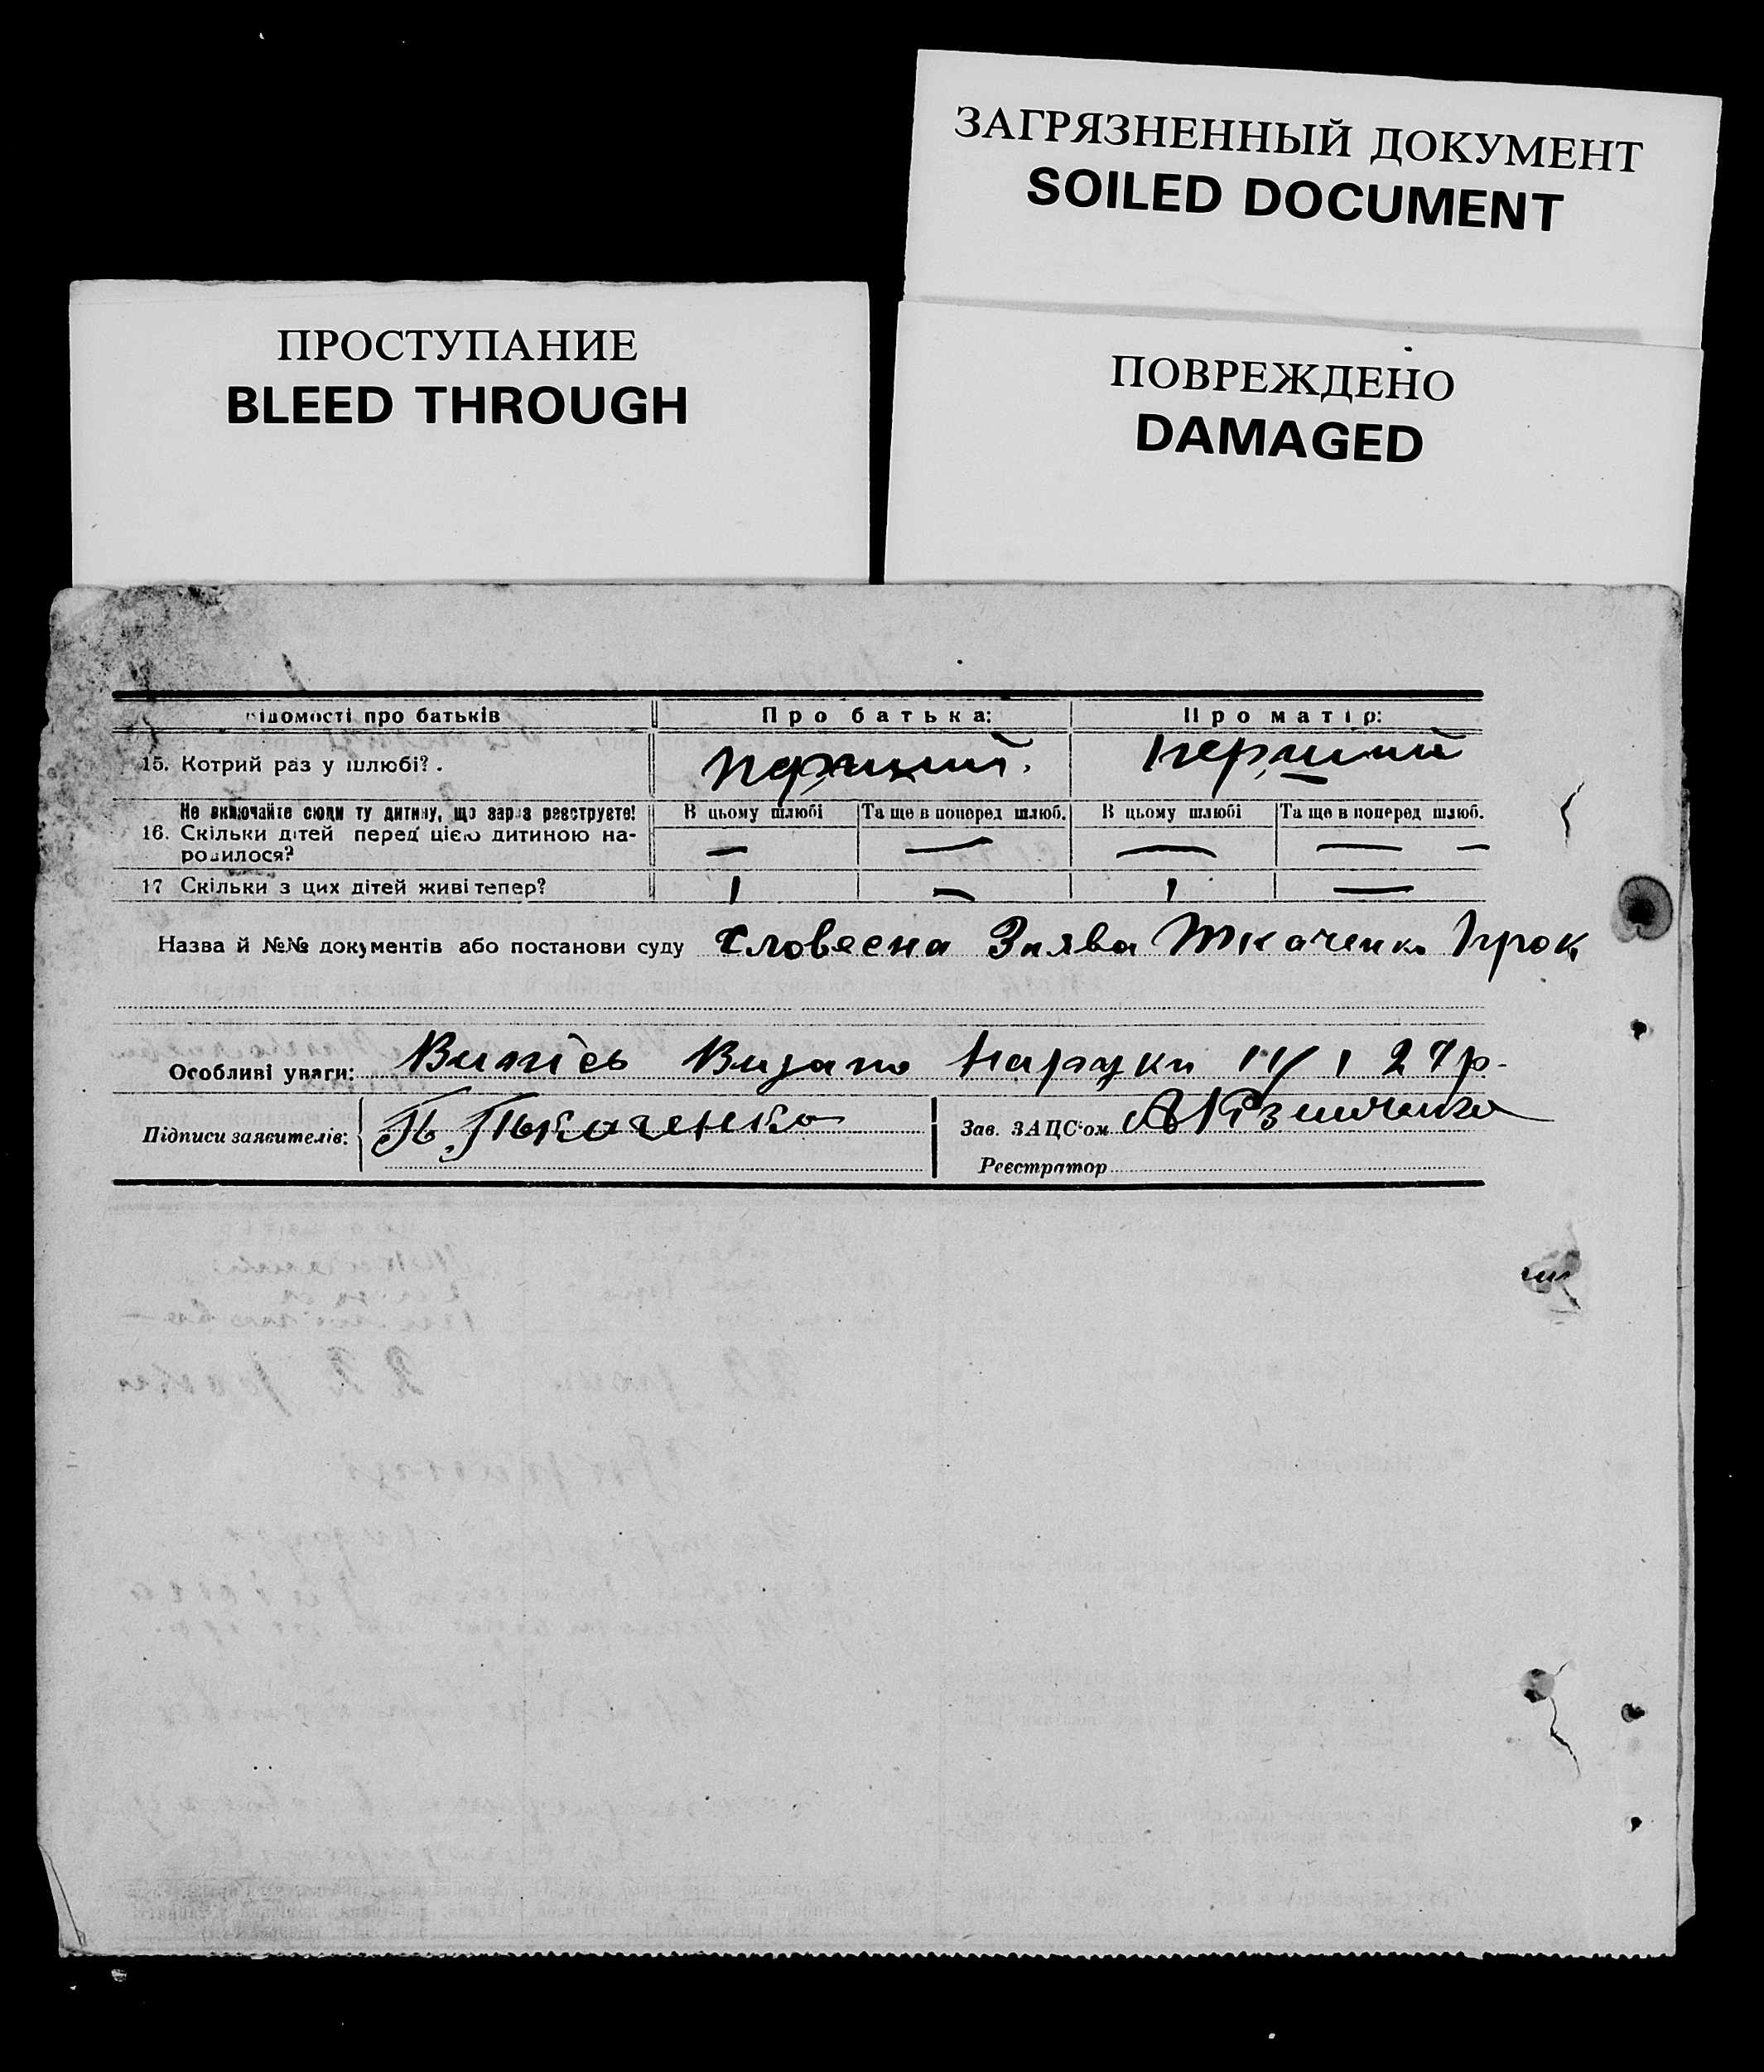 ЗАГРЯЗНЕННЫЙ ДОКУМЕНТ
SOILED DOCUMENT
ПРОСТУПАНИЕ
BLEED THROUGH
ПОВРЕЖДЕНО
DAMAGED
Відомості про батьків
Про батька:
Про матір:
15. Котрий раз у шлюбі?.
перший.
перший
Не включайте сюди ту дитину, що зараз реєструєте!
В цьому шлюбі
Та ще в поперед шлюб.
В цьому шлюбі
Та ще в поперед шлюб.
16. Скільки дітей перед цією дитиною на-
родилося?
— — — — —
17 Скільки з цих дітей живі тепер?
1 — 1 —
Назва й №№ документів або постанови суду Словесна Заява Ткаченко Прок
Особливі уваги: Випісь Видано на руки 11/1 27р.
Підписи заявителів: П. Ткаченко
Зав. ЗАЦС'ом
Реєстратор